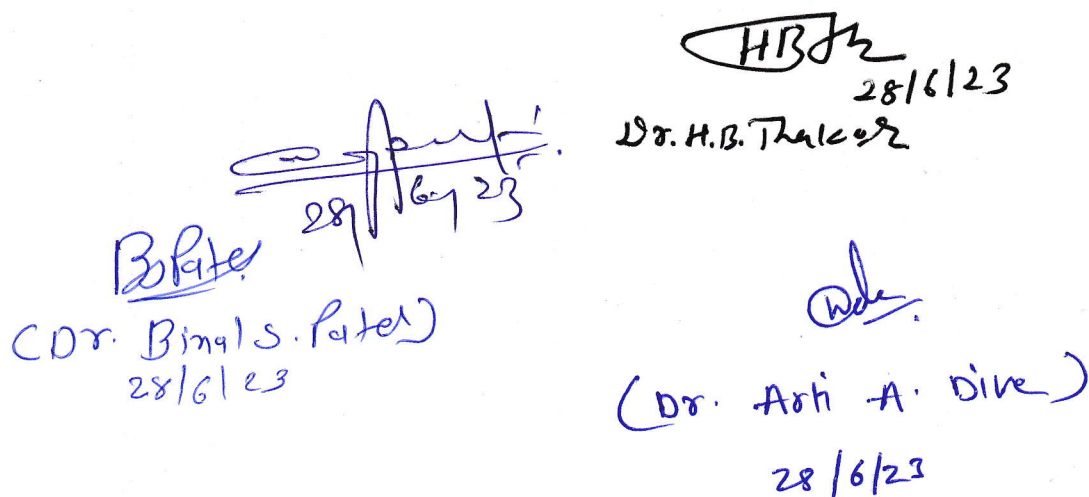 HBTh
28/6/23
Dr. H.B. Thakor
28/6/23
BSPatel
(Dr. Binal S. Patel)
28/6/23
(Dr. Arti A. Dive)
28/6/23